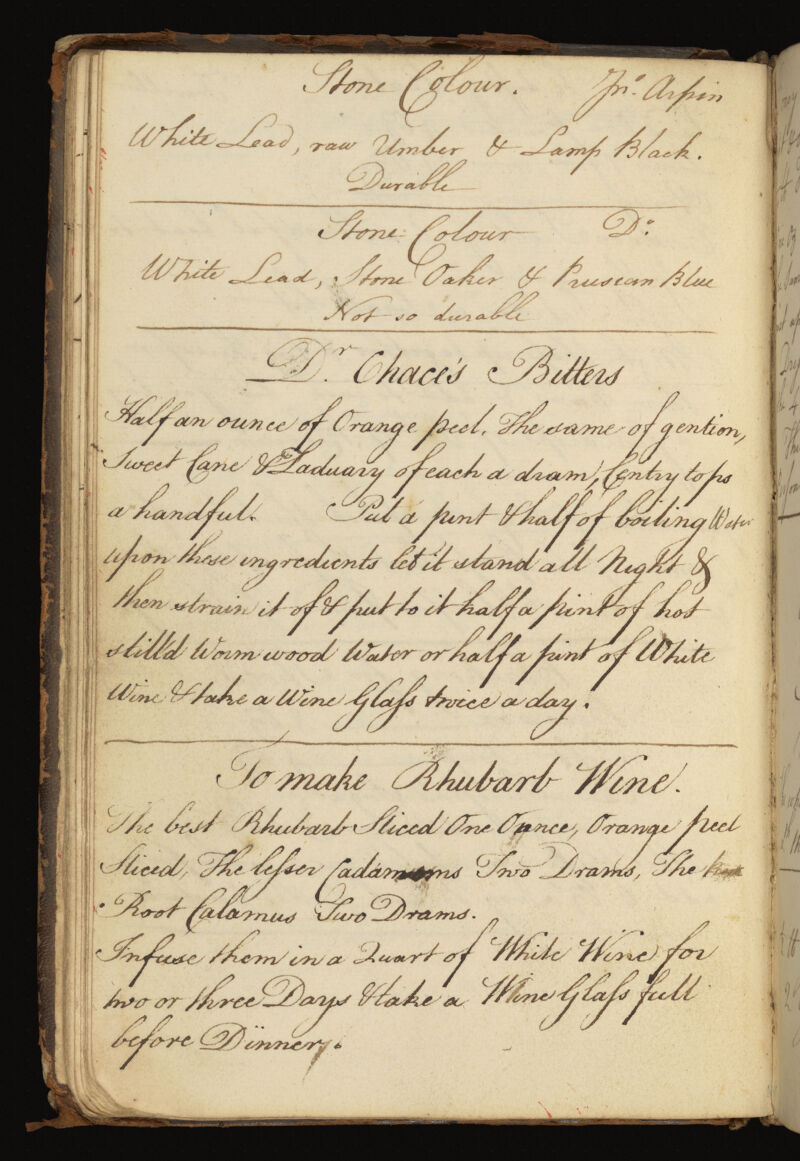 Stone Colour. Jno. Arpin
White Lead, raw Umber & Lamp Black.
Durable
Stone Colour Do.
White Lead, Stone Oaker & Prusean Blue
Not so durable
Dr. Chace's Bitters
Half an ounce of Orange peel, The same of gention,
Sweet Cane & Zaduary of each a dram, Centry tops
a handful. Put a pint & half of boiling Water
upon these ingredients let it stand all Night &
then strain it of & put to it half a pint of hot
still'd Worm wood Water or half a pint of White
Wine & take a Wine Glass twice a day.
To make Rhubarb Wine.
The best Rhubarb Sliced One Ounce, Orange peel
Sliced, The lesser Cadamoms Two Drams, The
Root Calamus Two Drams.
Infuse them in a Quart of White Wine for
two or three Days & take a Wine Glass full
before Dinner.